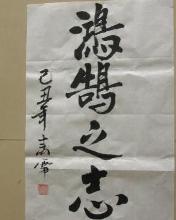 鴻鵠之志
己丑年